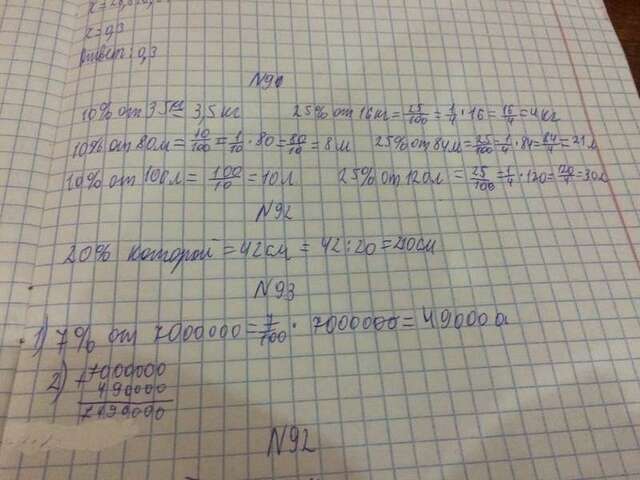 x=0,3
Ответ: 0,3
N90
10% от 35кг = 3,5 кг 25% от 16кг = 25/100 = 1/4 · 16 = 16/4 = 4кг
10% от 80м = 10/100 = 1/10 · 80 = 80/10 = 8м 25% от 84м = 25/100 = 1/4 · 84 = 84/4 = 21м
10% от 100л = 100/10 = 10л 25% от 120л = 25/100 = 1/4 · 120 = 30л
N92
20% которой = 42см = 42:20 = 210см
N93
1) 7% от 7000000 = 7/100 · 7000000 = 490000
2) 7000000
490000
7490000
N92